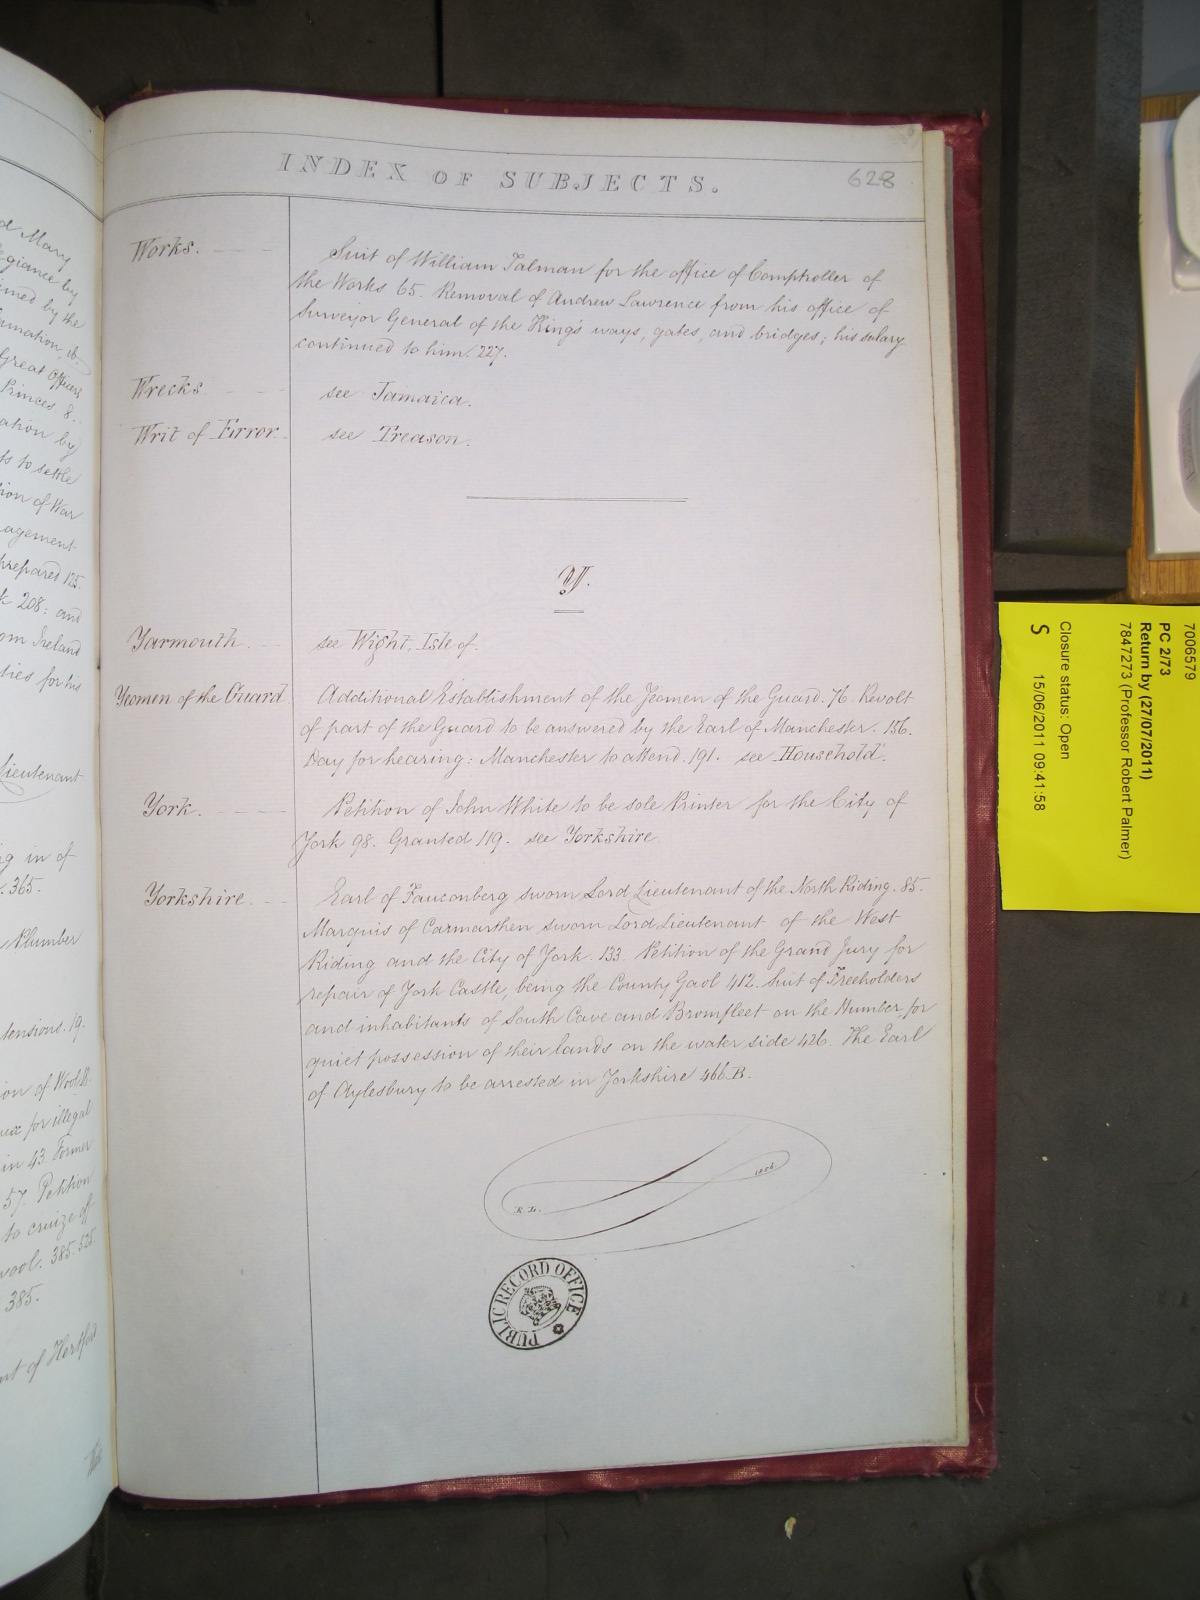 INDEX OF SUBJECTS.
628
Works.
Suit of William Talman for the office of Comptroller of
the Works 65. Removal of Andrew Lawrence from his office of
Surveyor General of the King's ways, gates, and bridges; his salary
continued to him. 227.
Wrecks.
see Jamaica.
Writ of Error.
see Treason.
Y.
Yarmouth.
see Wight, Isle of.
Yeomen of the Guard
Additional Establishment of the Yeomen of the Guard. 76. Revolt
of part of the Guard to be answered by the Earl of Manchester. 156.
Day for hearing: Manchester to attend. 191. see Household.
York.
Petition of John White to be sole Printer for the City of
York 98. Granted 119. see Yorkshire.
Yorkshire.
Earl of Fauconberg sworn Lord Lieutenant of the North Riding. 85.
Marquis of Carmarthen sworn Lord Lieutenant of the West
Riding and the City of York. 133. Petition of the Grand Jury for
repair of York Castle, being the County Gaol 412. Suit of Freeholders
and inhabitants of South Cave and Bromfleet on the Humber for
quiet possession of their lands on the water side 426. The Earl
of Aylesbury to be arrested in Yorkshire 466.B.
R.L.
PUBLIC RECORD OFFICE
d Mary
giance by
ined by the
amation, ib.
Great Officers
Princes 8.
ation by
ts to settle
ion of War
agement
prepared 125.
k 208: and
om Ireland
ties for his
Lieutenant
g in of
. 365.
Plumber
tensions. 19.
ion of Wool
for illegal
in 43. Former
57. Petition
to cruize off
wool. 385. 525.
385.
nt of Hertford
7006579
PC 2/73
Return by (27/07/2011)
7847273 (Professor Robert Palmer)
Closure status: Open
S 15/06/2011 09:41:58